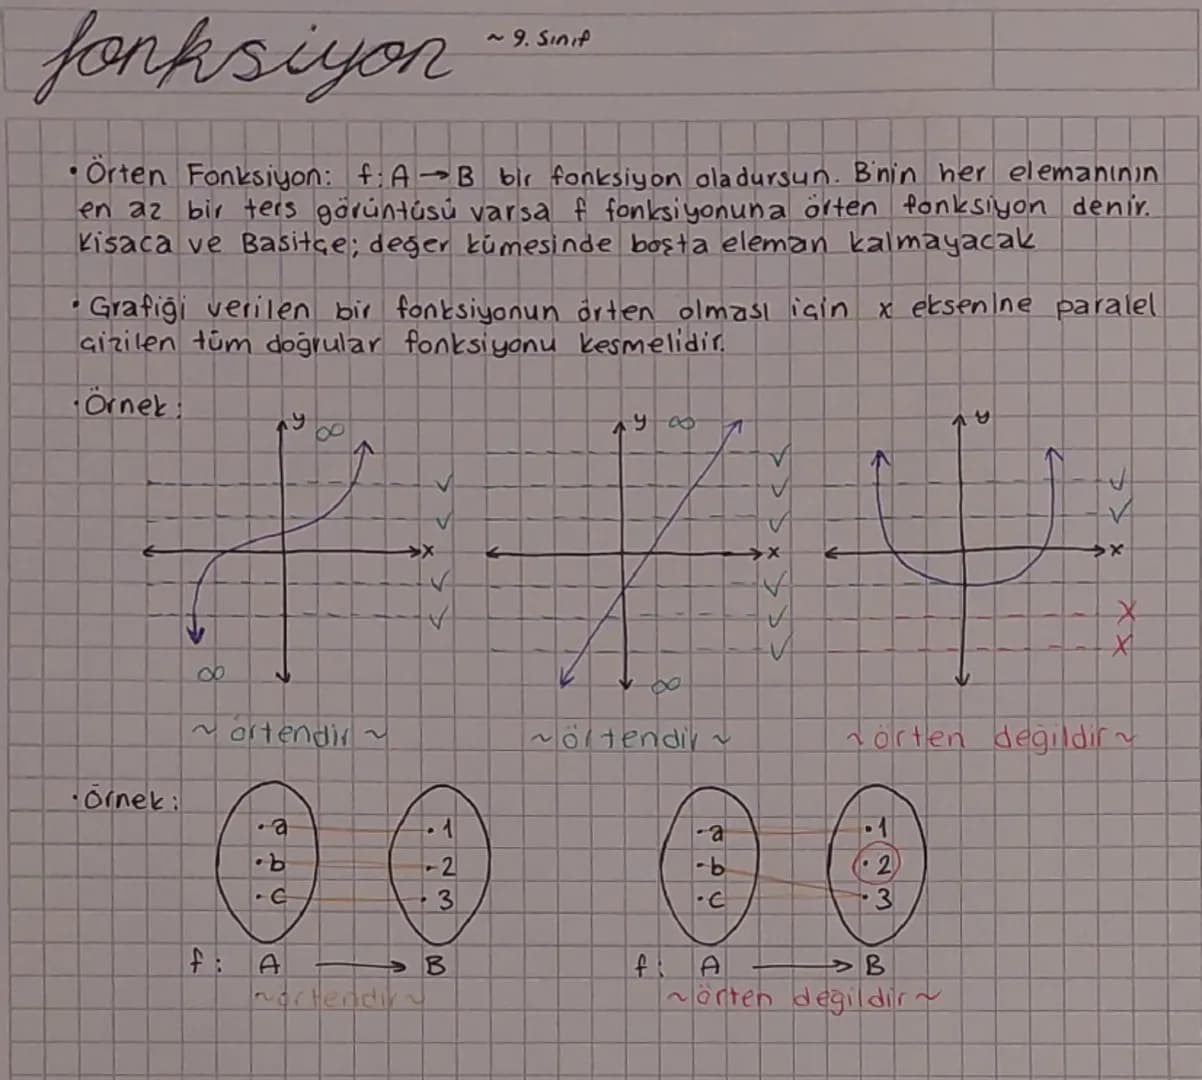 fonksiyon ~ 9. Sınıf
• Örten Fonksiyon: f: A → B bir fonksiyon oladursun. B'nin her elemanının
en az bir ters görüntüsü varsa f fonksiyonuna örten fonksiyon denir.
Kısaca ve Basitçe; değer kümesinde boşta eleman kalmayacak
• Grafiği verilen bir fonksiyonun örten olması için x eksenine paralel
çizilen tüm doğrular fonksiyonu kesmelidir.
• Örnek:
y ∞ y ∞ y
x x x
∞ ∞
~ örtendir ~ ~ örtendir ~ ~ örten değildir ~
• Örnek:
•a •1 -a •1
•b -2 -b •2
•c •3 •c •3
f: A → B f: A → B
~örtendir~ ~örten değildir~